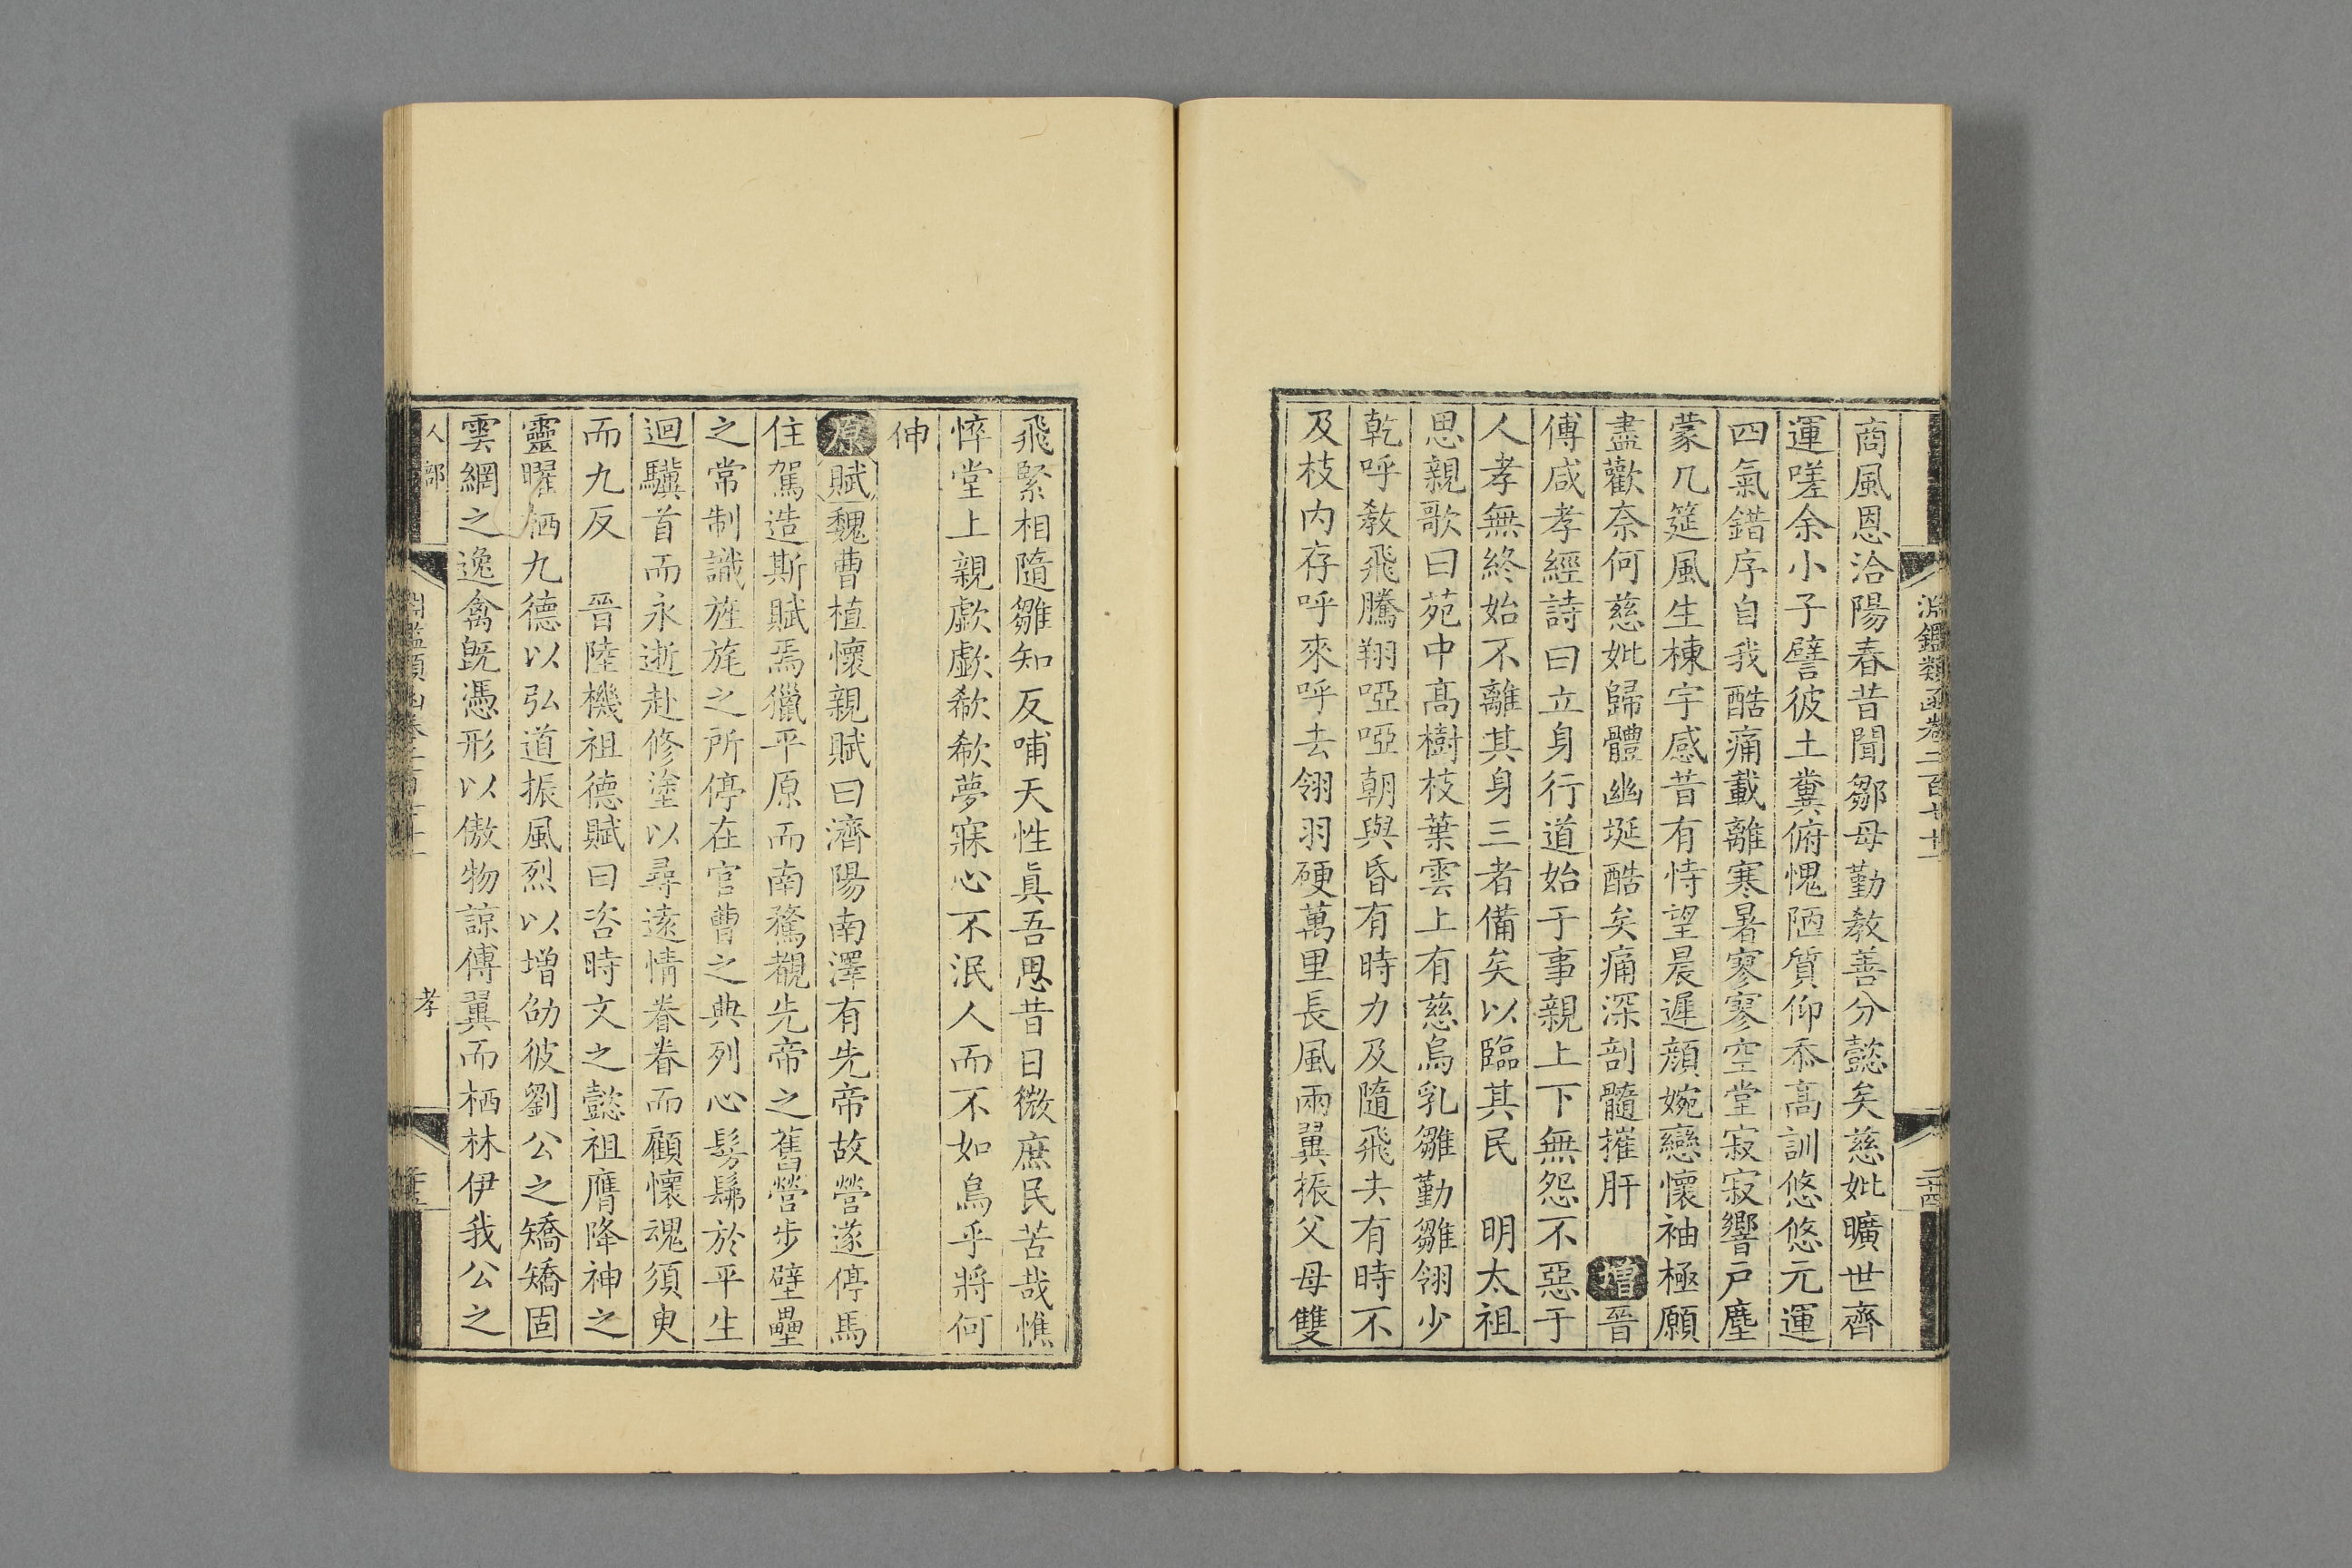 淵鑑類函卷二百七十一
二十四
商風恩洽陽春昔聞鄒母勤教善分懿矣慈妣曠世齊
運嗟余小子譬彼土糞俯愧陋質仰忝高訓悠悠元運
四氣錯序自我酷痛載離寒暑寥寥空堂寂寂響戶塵
蒙几筵風生棟宇感昔有恃望晨遲顔婉戀懷袖極願
盡歡奈何慈妣歸體幽埏酷矣痛深剖髓摧肝 增晉
傅咸孝經詩曰立身行道始于事親上下無怨不惡于
人孝無終始不離其身三者備矣以臨其民 明太祖
思親歌曰苑中髙樹枝葉雲上有慈烏乳雛勤雛翎少
乾呼教飛騰翔啞啞朝與昏有時力及隨飛去有時不
及枝内存呼來呼去翎羽硬萬里長風兩翼振父母雙
飛緊相隨雛知反哺天性眞吾思昔日微庶民苦哉憔
悴堂上親歔歔欷欷夢寐心不泯人而不如烏乎將何
伸
原賦魏曹植懷親賦曰濟陽南澤有先帝故營遂停馬
住駕造斯賦焉獵平原而南騖覩先帝之舊營步壁壘
之常制識旌旄之所停在官曹之典列心髣髴於平生
迴驥首而永逝赴修塗以尋遠情眷眷而顧懷魂須臾
而九反 晉陸機祖德賦曰咨時文之懿祖膺降神之
靈曜栖九德以弘道振風烈以增劭彼劉公之矯矯固
雲網之逸禽旣憑形以傲物諒傅翼而栖林伊我公之
人部
孝